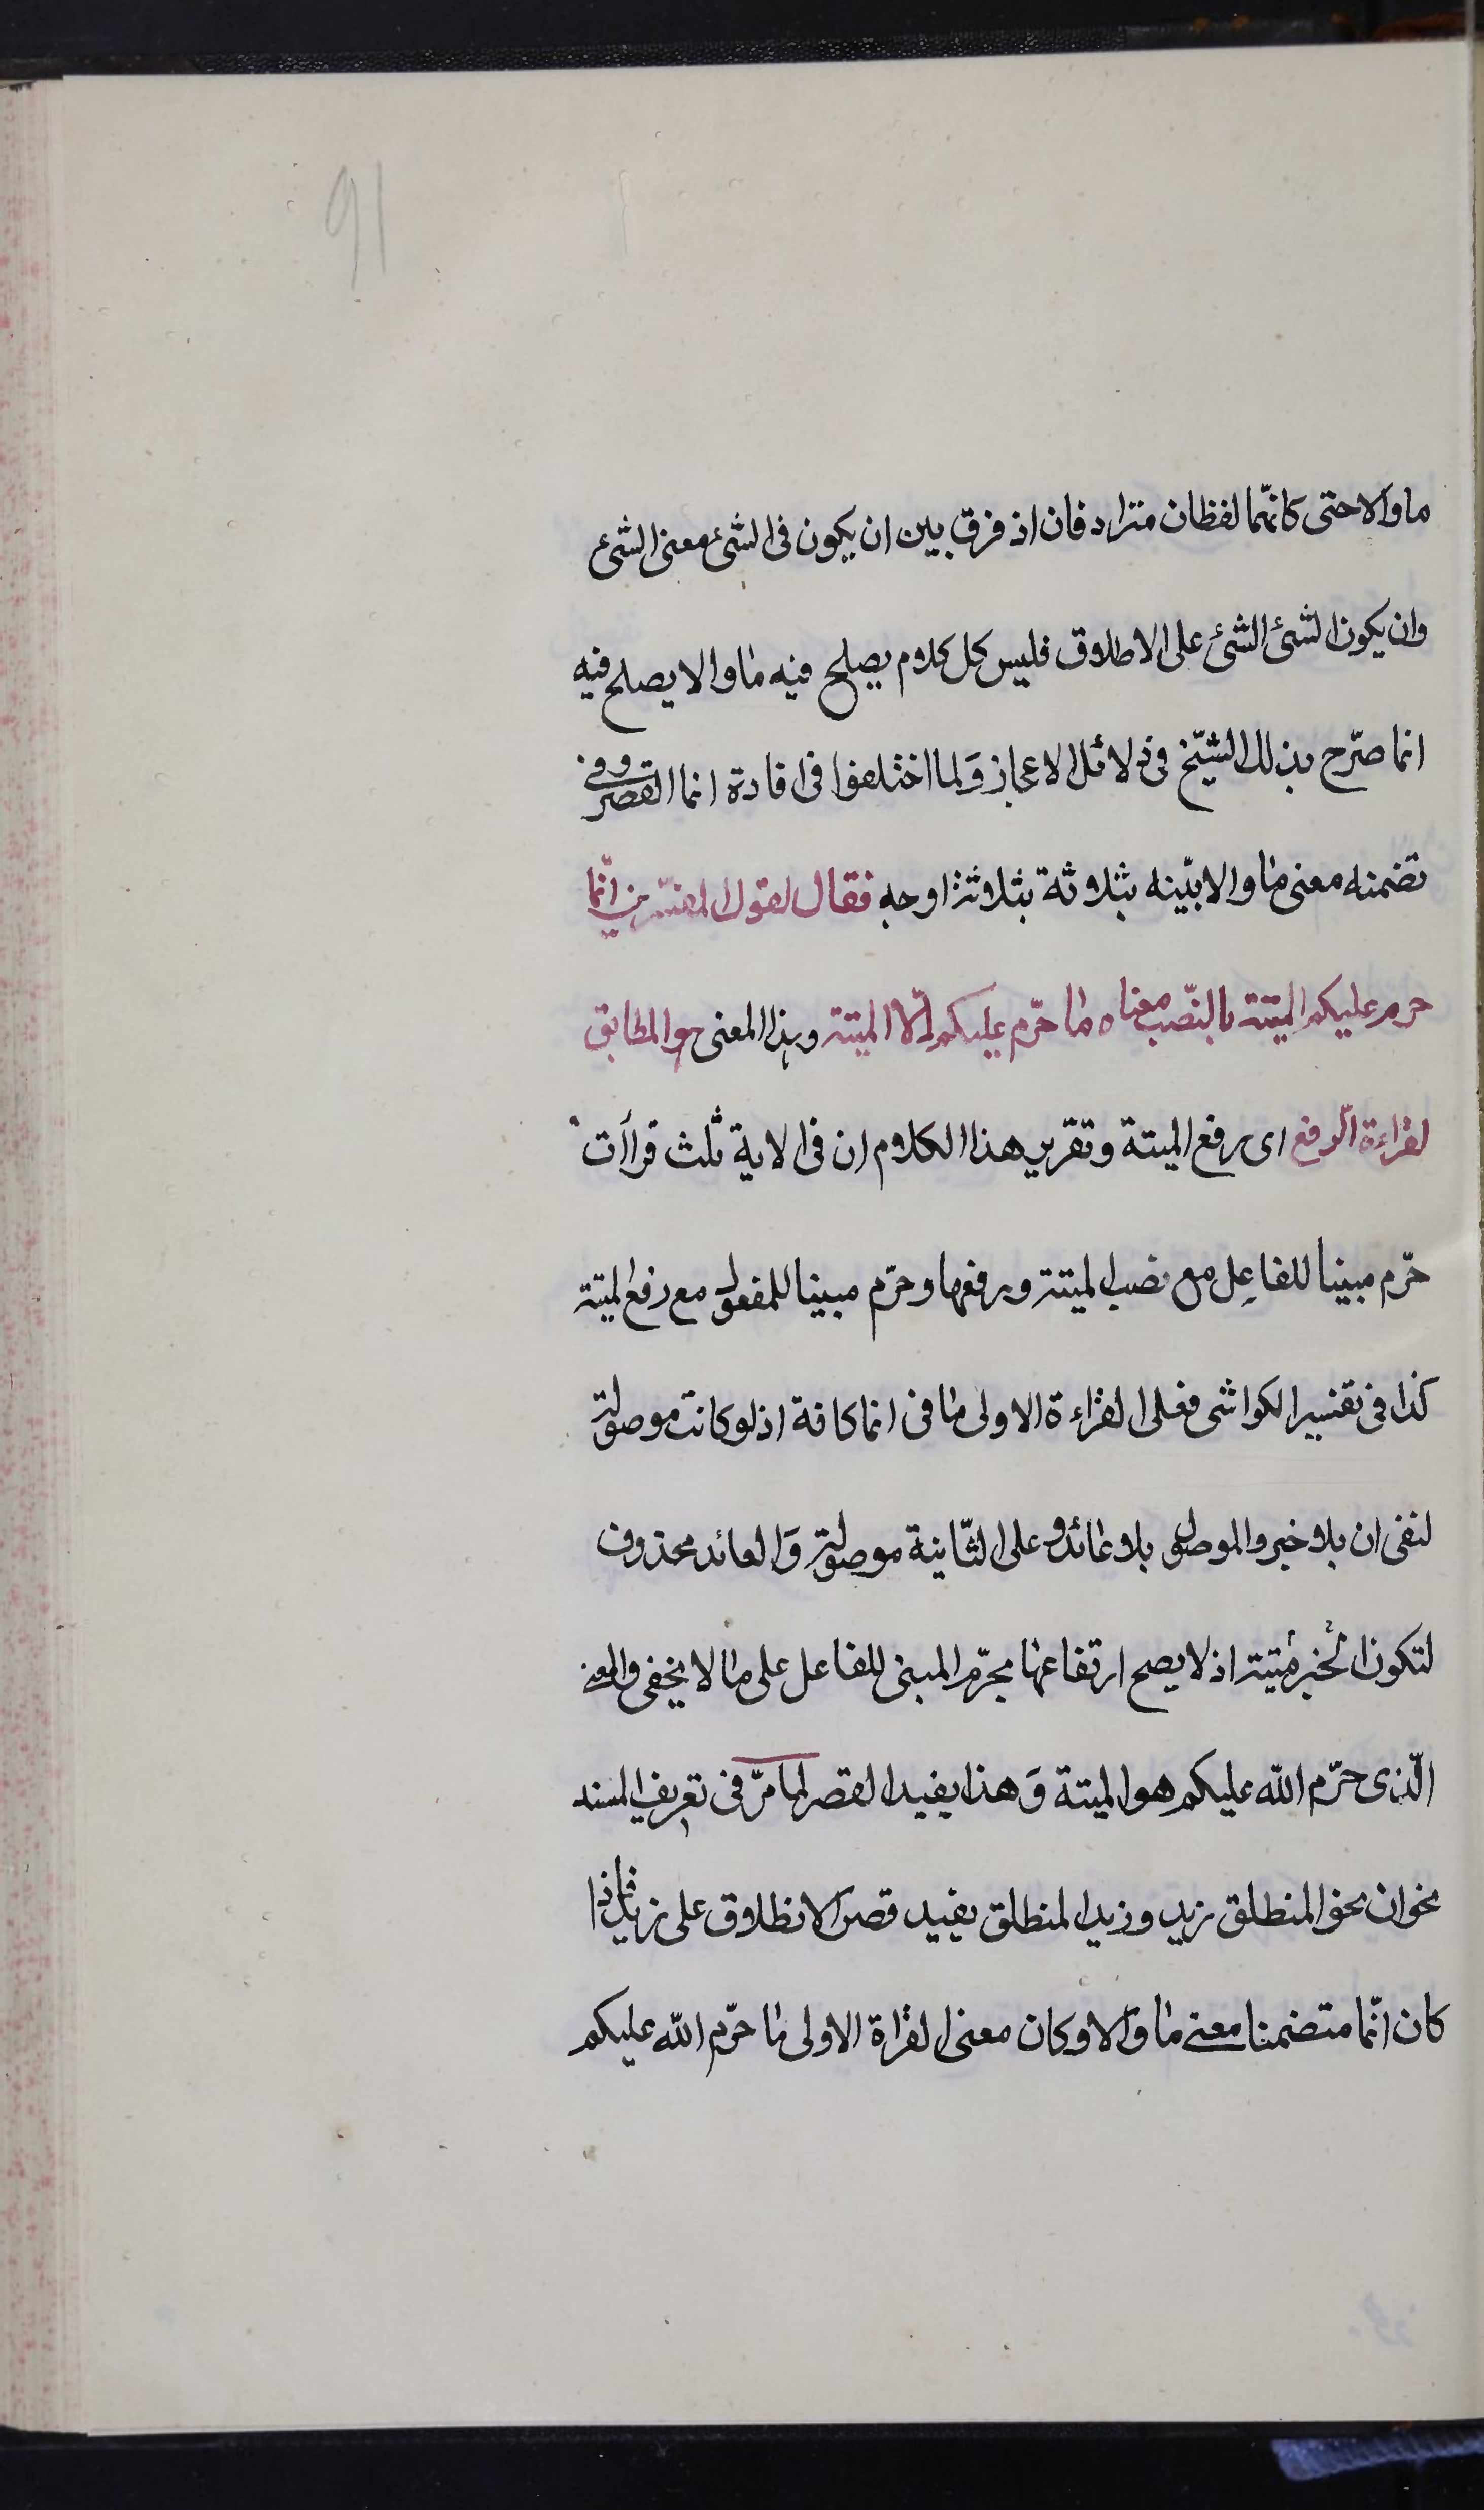 91
ما والا حتى كانهّما لفظان مترادفان اذ فرق بين ان يكون فى الشئ معنى الشئ
وان يكون الشئ الشئ على الاطلاق فليس كل كلام يصلح فيه ما والا يصلح فيه
انما صرّح بذلك الشيّخ فى دلائل الاعجاز وَلما اختلفوا فى افادة انما القصر وفى
تضمنه معنى ما والا بيّنه بثلاثة بثلاثة اوجه فقال لقول المفسّرين انّما
حرم عليكم الميتة بالنّصب معناه ما حرّم عليكم الّا الميتة وهذا المعنى هو المطابق
لقراءة الرّفع اى برفع الميتة وتقرير هذا الكلام ان فى الاية ثلث قراآت
حرّم مبينا للفاعِل مع نصب الميتة وبرفعها وحرّم مبينا للمفعول مع رفع الميتة
كذا فى تفسير الكواشى فعلى القراءة الاولى ما فى انما كافة اذ لو كانت موصولة
لنفى ان بلا خبر والموصول بلا عائد وعلى الثّانية موصولة وَالعائد محذوف
لتكون الخبر ميتة اذ لا يصح ارتفاعها بحرّم المبنى للفاعل على ما لا يخفى والمعنى
الّذى حرّم الله عليكم هو الميتة وَهذا يفيد القصر لما مرّ فى تعريف المسند
نحو ان نحو المنطلق زيد وزيد المنطلق يفيد قصر الانطلاق على زيد فاذا
كان انّما متضمنا معنى ما وَالا وكان معنى القراة الاولى ما حرّم الله عليكم